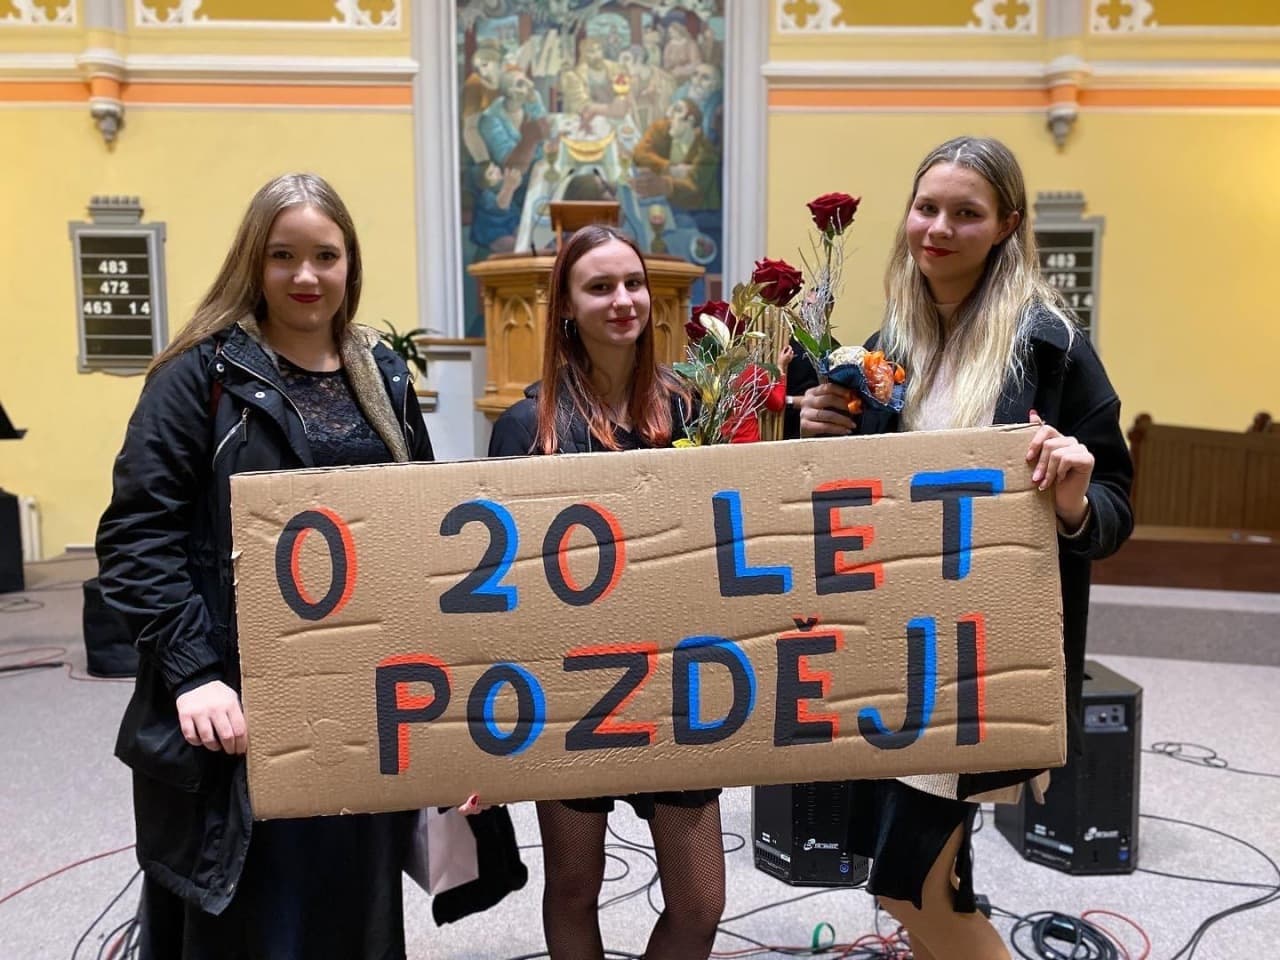 483
472
463 14
483
472
14
O 20 LET
POZDĚJI